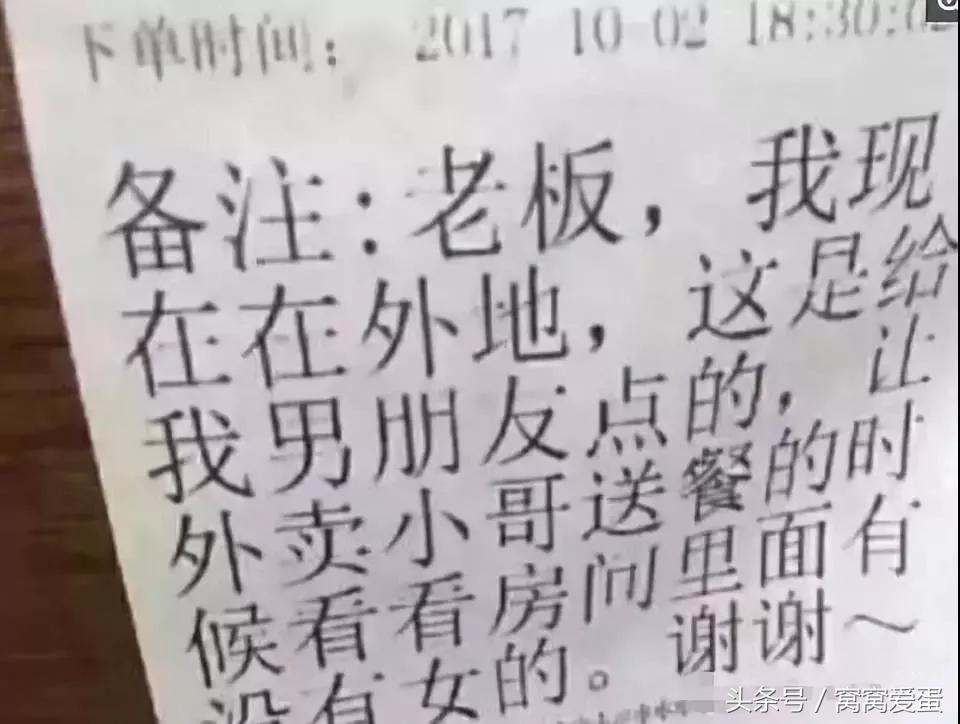 下单时间： 2017-10-02 18:30:02
备注：老板，我现
在在外地，这是给
我男朋友点的，让
外卖小哥送餐的时
候看看房间里面有
没有女的。谢谢～
头条号／窝窝爱蛋